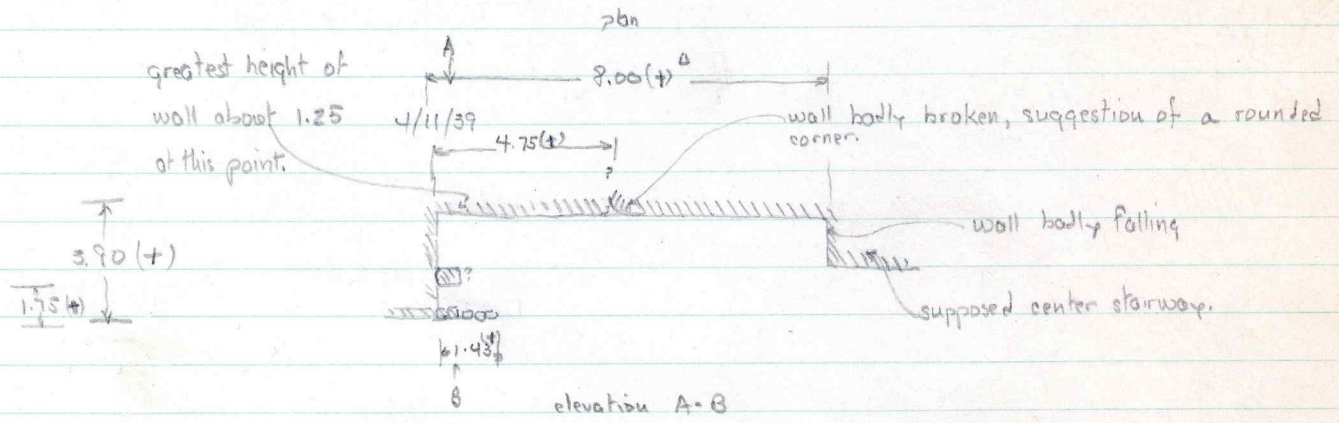 plan
A
8.00(+)
greatest height of
wall about 1.25
at this point.
4/11/39
4.75(+)
?
wall badly broken, suggestion of a rounded
corner.
wall badly falling
3.90 (+)
?
1.75(+)
supposed center stairway.
1.43(+)
B
elevation A-B